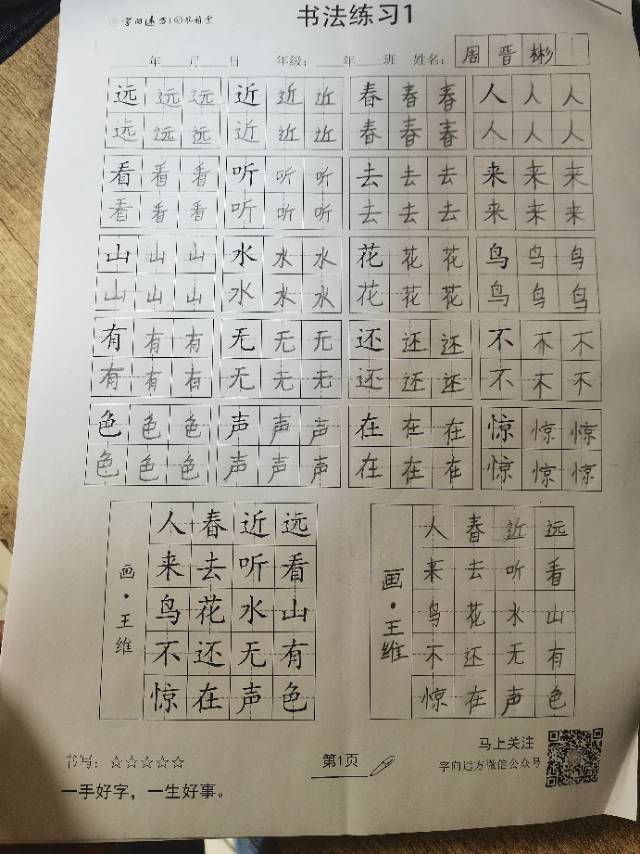 书法练习1
年 月 日 年级： 年 班 姓名： 周晋彬
远远远 近近近 春春春 人人人
远远远 近近近 春春春 人人人
看看看 听听听 去去去 来来来
看看看 听听听 去去去 来来来
山山山 水水水 花花花 鸟鸟鸟
山山山 水水水 花花花 鸟鸟鸟
有有有 无无无 还还还 不不不
有有有 无无无 还还还 不不不
色色色 声声声 在在在 惊惊惊
色色色 声声声 在在在 惊惊惊
人春近远
来去听看
鸟花水山
不还无有
惊在声色
画·王维
人春近远
来去听看
鸟花水山
不还无有
惊在声色
画·王维
书写：☆☆☆☆☆
第1页
马上关注
字向远方微信公众号
一手好字，一生好事。